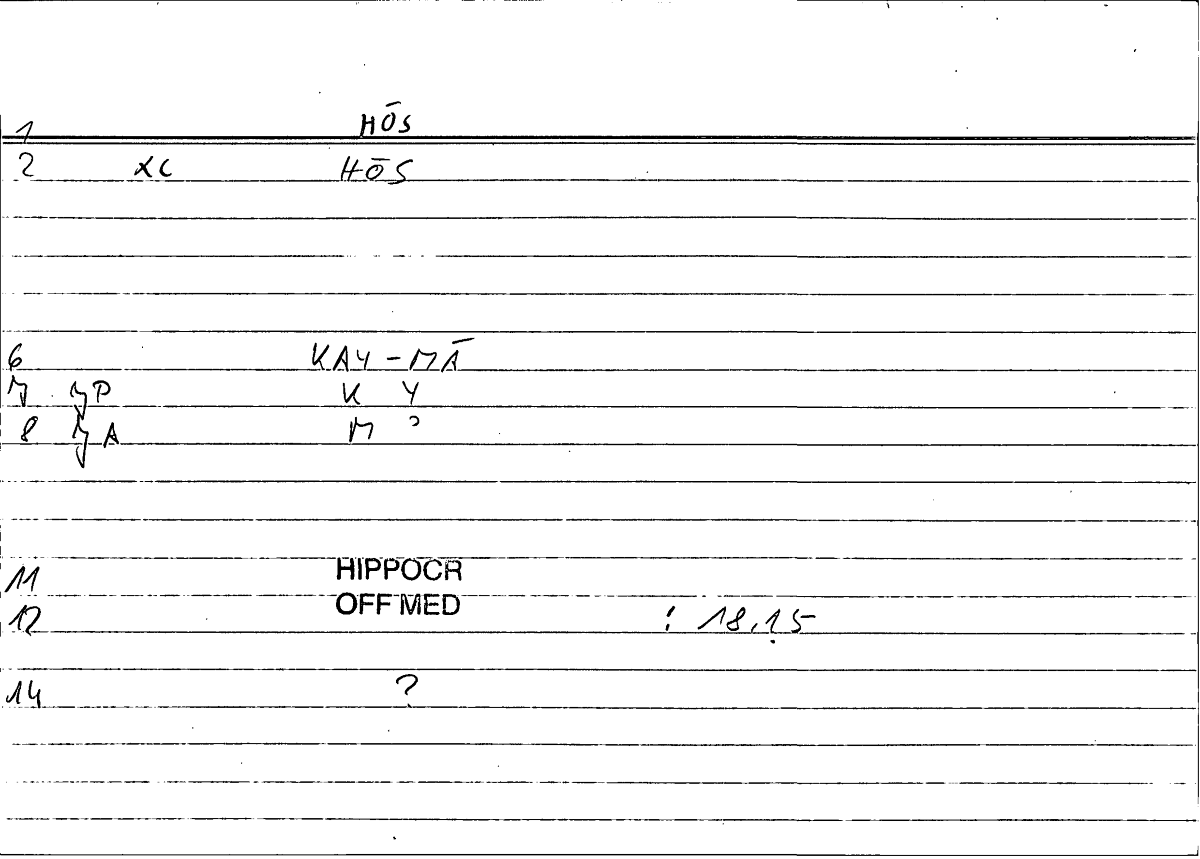 1 HŌS
2 XC HŌS
6 KAY-MĀ
P K Y
8 A M ʾ
11 HIPPOCR
12 OFF MED : 18.15
14 ?